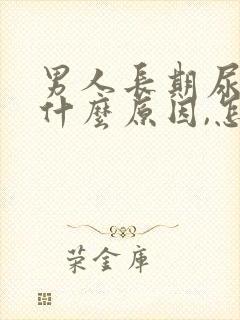 男人長期尿
什麼原因,怎
荣金庫